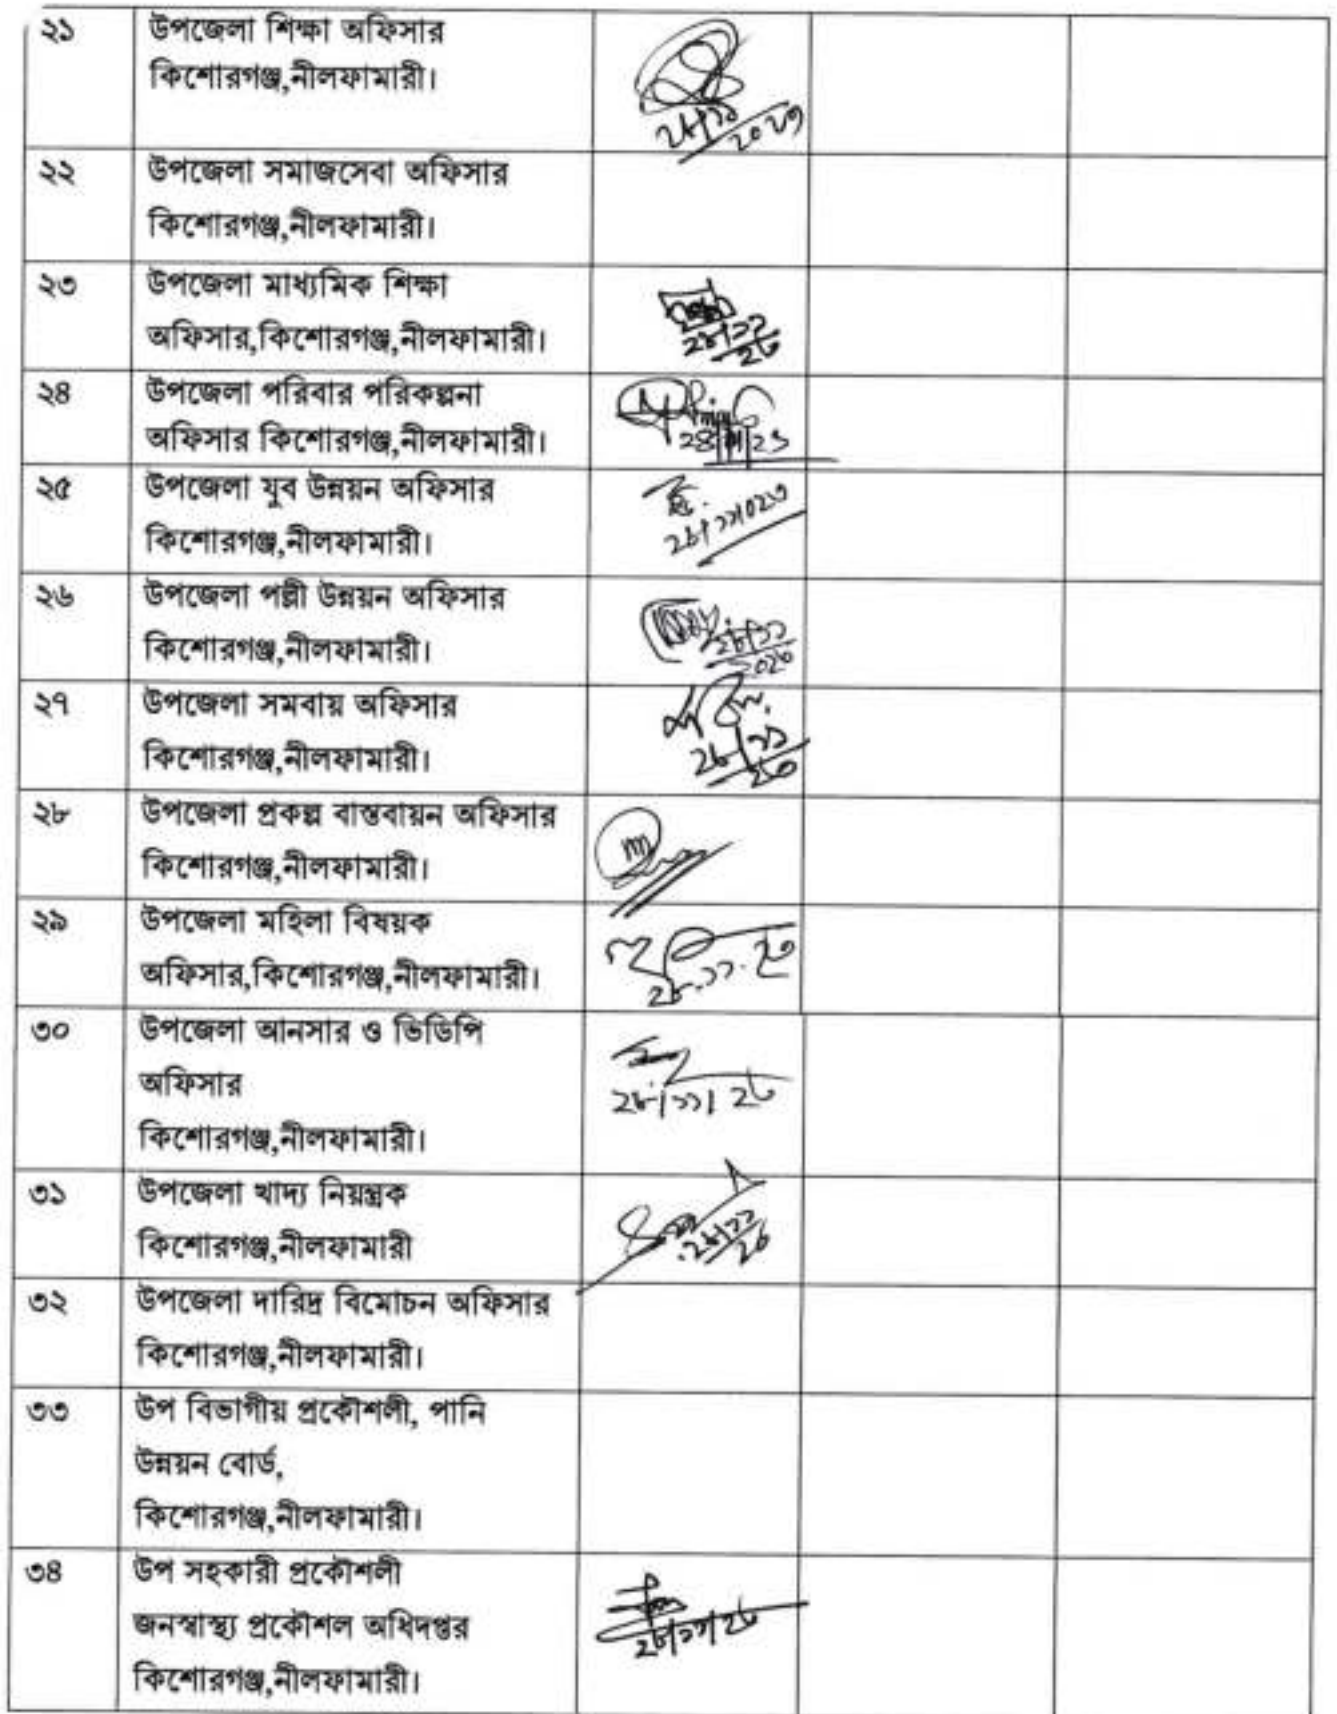 ২১ উপজেলা শিক্ষা অফিসার
কিশোরগঞ্জ,নীলফামারী।
২৮/১১
২০২৩
২২ উপজেলা সমাজসেবা অফিসার
কিশোরগঞ্জ,নীলফামারী।
২৩ উপজেলা মাধ্যমিক শিক্ষা
অফিসার,কিশোরগঞ্জ,নীলফামারী।
২৮/১১
২৩
২৪ উপজেলা পরিবার পরিকল্পনা
অফিসার কিশোরগঞ্জ,নীলফামারী।
২৫ উপজেলা যুব উন্নয়ন অফিসার
কিশোরগঞ্জ,নীলফামারী।
২৬ উপজেলা পল্লী উন্নয়ন অফিসার
কিশোরগঞ্জ,নীলফামারী।
২৮/১১
২০২৩
২৭ উপজেলা সমবায় অফিসার
কিশোরগঞ্জ,নীলফামারী।
২৮/১১
২৩
২৮ উপজেলা প্রকল্প বাস্তবায়ন অফিসার
কিশোরগঞ্জ,নীলফামারী।
২৯ উপজেলা মহিলা বিষয়ক
অফিসার,কিশোরগঞ্জ,নীলফামারী।
২৮.১১.২৩
৩০ উপজেলা আনসার ও ভিডিপি
অফিসার
কিশোরগঞ্জ,নীলফামারী।
২৮/১১/২৩
৩১ উপজেলা খাদ্য নিয়ন্ত্রক
কিশোরগঞ্জ,নীলফামারী
২৮/১১
২৩
৩২ উপজেলা দারিদ্র বিমোচন অফিসার
কিশোরগঞ্জ,নীলফামারী।
৩৩ উপ বিভাগীয় প্রকৌশলী, পানি
উন্নয়ন বোর্ড,
কিশোরগঞ্জ,নীলফামারী।
৩৪ উপ সহকারী প্রকৌশলী
জনস্বাস্থ্য প্রকৌশল অধিদপ্তর
কিশোরগঞ্জ,নীলফামারী।
২৮/১১/২৩